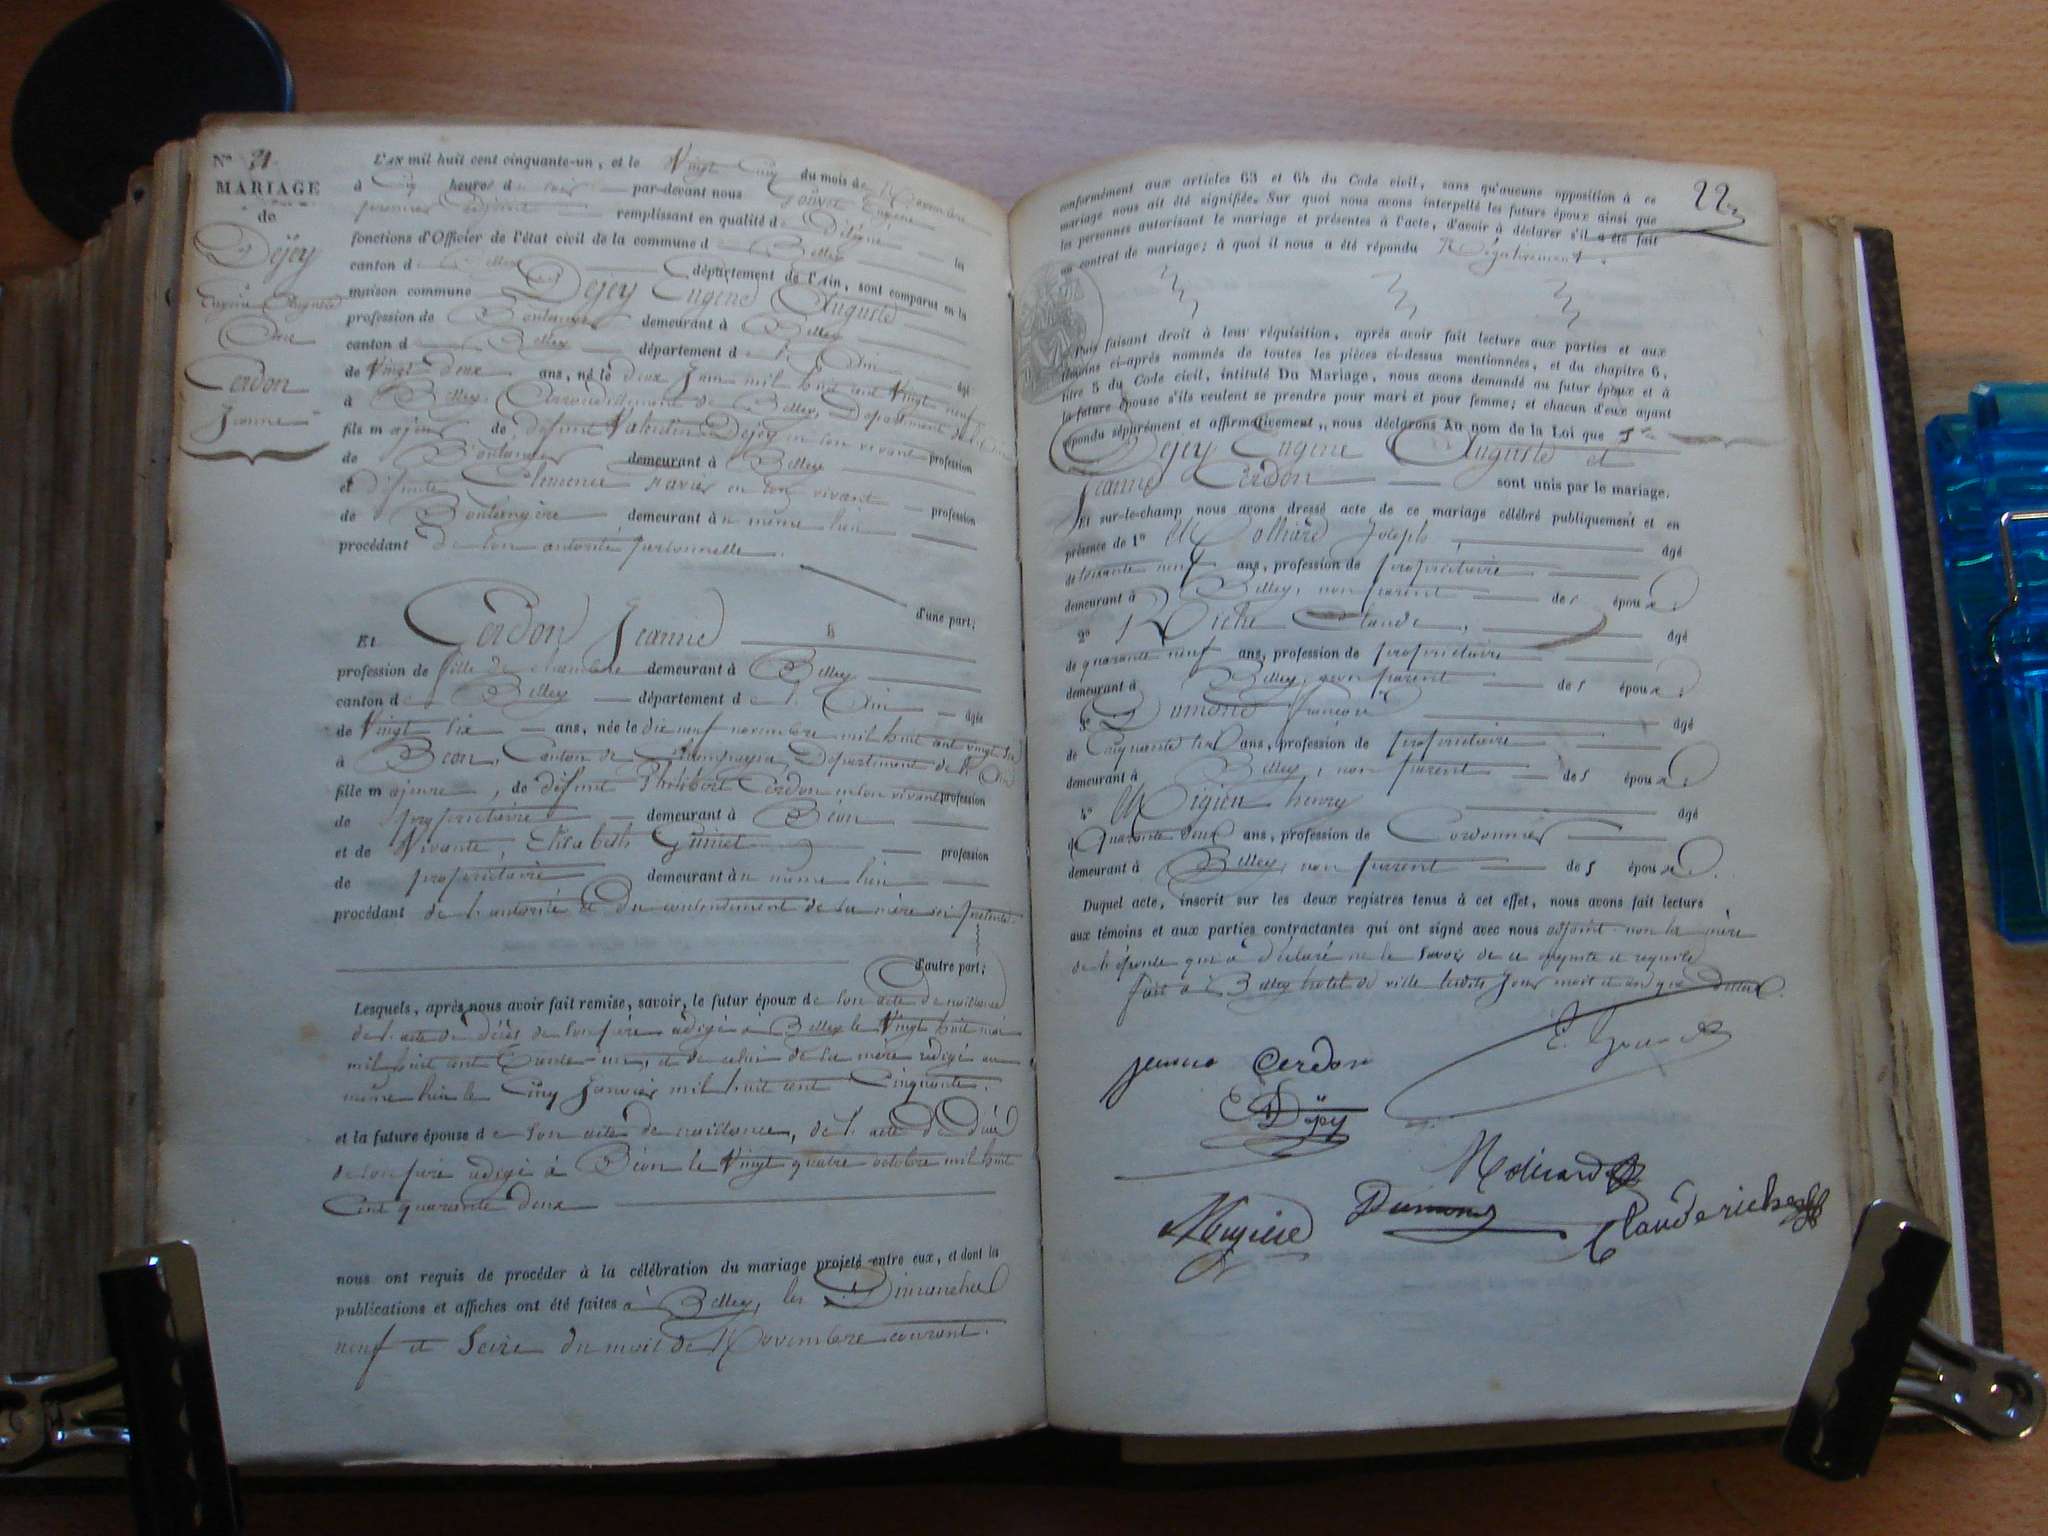 N° 21
MARIAGE
de
Dejey
Eugène Auguste
Avec
Cerdon
Jeanne
L'AN mil huit cent cinquante-un, et le Vingt Cinq du mois de Novembre
à Cinq heures du soir par-devant nous
premier adjoint remplissant en qualité de Délégué les
fonctions d'Officier de l'état civil de la commune de Belley
canton de Belley département de l'Ain, sont comparus en la
maison commune Dejey Eugène Auguste
profession de Boulanger demeurant à Belley
canton de Belley département de l'Ain âgé
de Vingt deux ans, né le deux Juin mil huit cent Vingt neuf
à Belley, Arrondissement de Belley, Département de l'Ain
fils majeur de défunt Valentin Dejey en son vivant profession
de Boulanger demeurant à Belley
et défunte Clémence en son vivant profession
de Boulangère demeurant au même lieu
procédant de son autorité personnelle.
d'une part;
Et Cerdon Jeanne
profession de fille de chambre demeurant à Belley
canton de Belley département de l'Ain âgée
de Vingt six ans, née le dix neuf novembre mil huit cent vingt
à Béon, Canton de Champagne, Département de l'Ain
fille majeure, de défunt Philibert Cerdon en son vivant profession
de propriétaire demeurant à Béon
et de Vivante, Elisabeth Guinet profession
de propriétaire demeurant au même lieu
procédant de l'autorité et du consentement de sa mère ici présente.
d'autre part;
Lesquels, après nous avoir fait remise, savoir, le futur époux de son acte de naissance
de l'acte de décès de son père rédigé à Belley le Vingt huit mai
mil huit cent trente-un, et de celui de sa mère rédigé au
même lieu le Cinq Janvier mil huit cent Cinquante.
et la future épouse de son acte de naissance, de l'acte de décès
de son père rédigé à Béon le Vingt quatre octobre mil huit
Cent quarante deux
nous ont requis de procéder à la célébration du mariage projeté entre eux, et dont les
publications et affiches ont été faites à Belley, les Dimanches
neuf et Seize du mois de Novembre courant.
22
conformément aux articles 63 et 64 du Code civil, sans qu'aucune opposition à ce
mariage nous ait été signifiée. Sur quoi nous avons interpellé les futurs époux ainsi que
les personnes autorisant le mariage et présentes à l'acte, d'avoir à déclarer s'il a été fait
un contrat de mariage; à quoi il nous a été répondu Négativement.
Puis faisant droit à leur réquisition, après avoir fait lecture aux parties et aux
témoins ci-après nommés de toutes les pièces ci-dessus mentionnées, et du chapitre 6,
titre 5 du Code civil, intitulé Du Mariage, nous avons demandé au futur époux et à
la future épouse s'ils veulent se prendre pour mari et pour femme; et chacun d'eux ayant
répondu séparément et affirmativement, nous déclarons Au nom de la Loi que
Dejey Eugène Auguste et
Jeanne Cerdon sont unis par le mariage.
Et sur-le-champ nous avons dressé acte de ce mariage célébré publiquement et en
présence de 1° Molliard Joseph, âgé
de soixante neuf ans, profession de propriétaire
demeurant à Belley, non parent des époux
2° Riche Claude, âgé
de quarante neuf ans, profession de propriétaire
demeurant à Belley, non parent des époux
3° Dumond François âgé
de Cinquante six ans, profession de propriétaire
demeurant à Belley, non parent des époux
4° henry âgé
de Quarante deux ans, profession de Cordonnier
demeurant à Belley, non parent des époux
Duquel acte, inscrit sur les deux registres tenus à cet effet, nous avons fait lecture
aux témoins et aux parties contractantes qui ont signé avec nous adjoint non la mère
de l'épouse qui a déclaré ne le savoir de ce enquise et requise
fait à Belley hotel de ville lesdits jour mois et an que dessus.
jeanne Cerdon
E Dejey
Moliard
Dumond
Claude riche